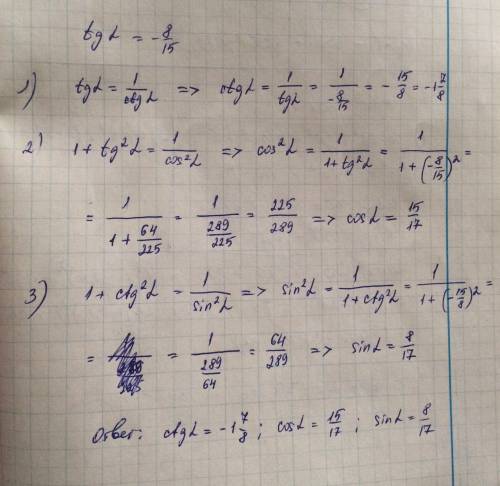 tg α = -8/15
1) tg α = 1/ctg α => ctg α = 1/tg α = 1/(-8/15) = -15/8 = -1 7/8
2) 1 + tg²α = 1/cos²α => cos²α = 1/(1+tg²α) = 1/(1+(-8/15)²) =
= 1/(1+64/225) = 1/(289/225) = 225/289 => cos α = 15/17
3) 1 + ctg²α = 1/sin²α => sin²α = 1/(1+ctg²α) = 1/(1+(-15/8)²) =
= = 1/(289/64) = 64/289 => sin α = 8/17
Ответ: ctg α = -1 7/8; cos α = 15/17; sin α = 8/17